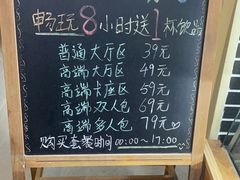 畅玩8小时送1杯饮品
普通大厅区 39元
高端大厅区 49元
高端卡座区 59元
高端双人包 69元
高端多人包 79元
购买套餐时间 00:00~17:00